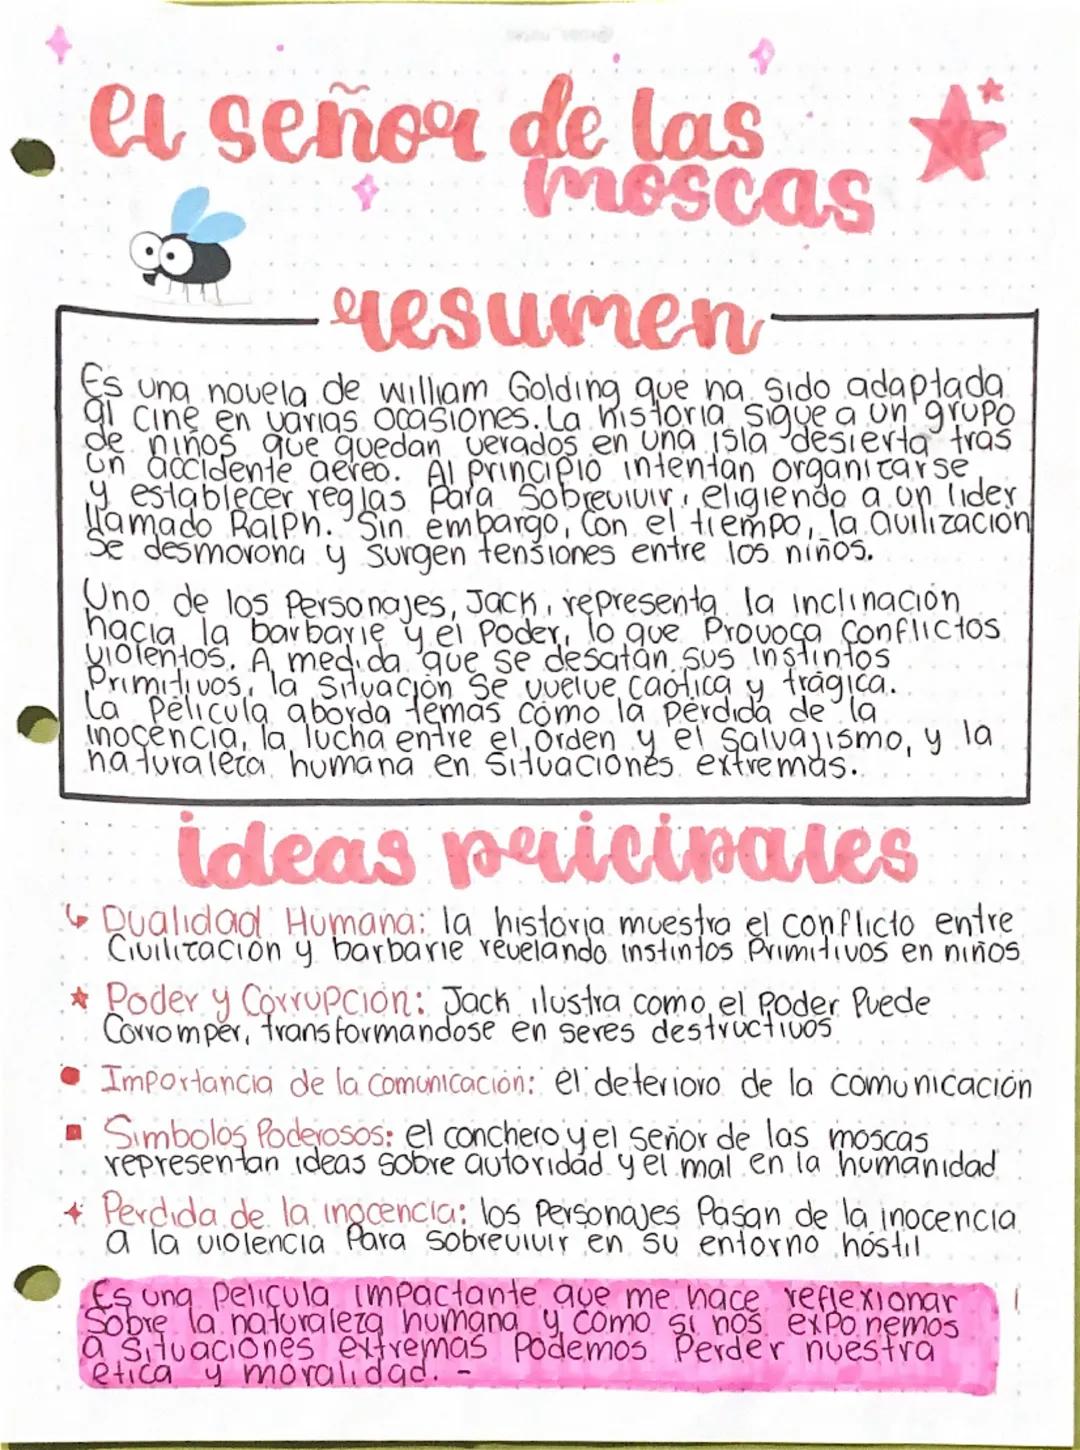 el señor de las
moscas
resumen
Es una novela de William Golding que ha sido adaptada
al cine en varias ocasiones. La historia sigue a un grupo
de niños que quedan verados en una isla desierta tras
un accidente aereo. Al principio intentan organizarse
y establecer reglas para sobrevivir, eligiendo a un lider
llamado Ralph. Sin embargo, con el tiempo, la civilización
se desmorona y surgen tensiones entre los niños.
Uno de los personajes, Jack, representa la inclinación
hacia la barbarie y el poder, lo que provoca conflictos
violentos. A medida que se desatan sus instintos
primitivos, la situación se vuelve caótica y trágica.
La película aborda temas como la pérdida de la
inocencia, la lucha entre el orden y el salvajismo, y la
naturaleza humana en situaciones extremas.
ideas pricipales
Dualidad Humana: la historia muestra el conflicto entre
Civilización y barbarie revelando instintos primitivos en niños
Poder y Corrupcion: Jack ilustra como el poder puede
Corromper, transformandose en seres destructivos
Importancia de la comunicación: el deterioro de la comunicación
Simbolos Poderosos: el conchero y el señor de las moscas
representan ideas sobre autoridad y el mal en la humanidad
Perdida de la inocencia: los personajes pasan de la inocencia
a la violencia para sobrevivir en su entorno hostil
Es una pelicula impactante que me hace reflexionar
sobre la naturaleza humana y como si nos exponemos
a situaciones extremas podemos perder nuestra
etica y moralidad. -